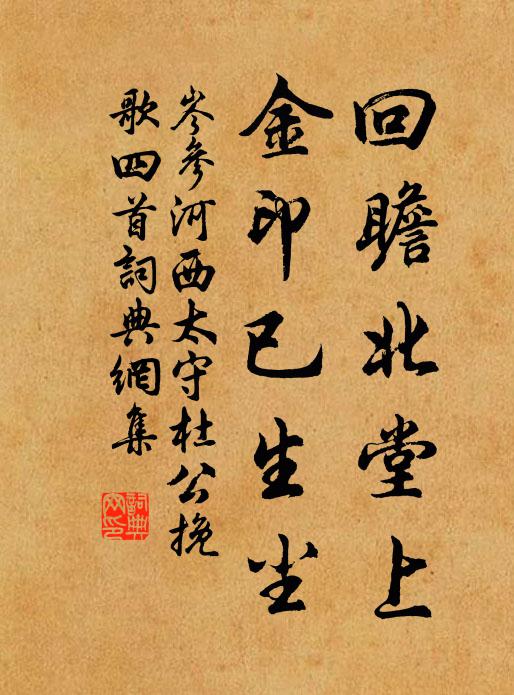 回瞻北堂上
金印已生尘
岑參河西太守杜公挽
歌四首詞典網集
詞典網印